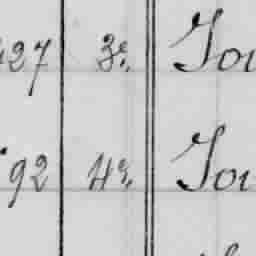 427 3e. Jou
92 4e. Jou